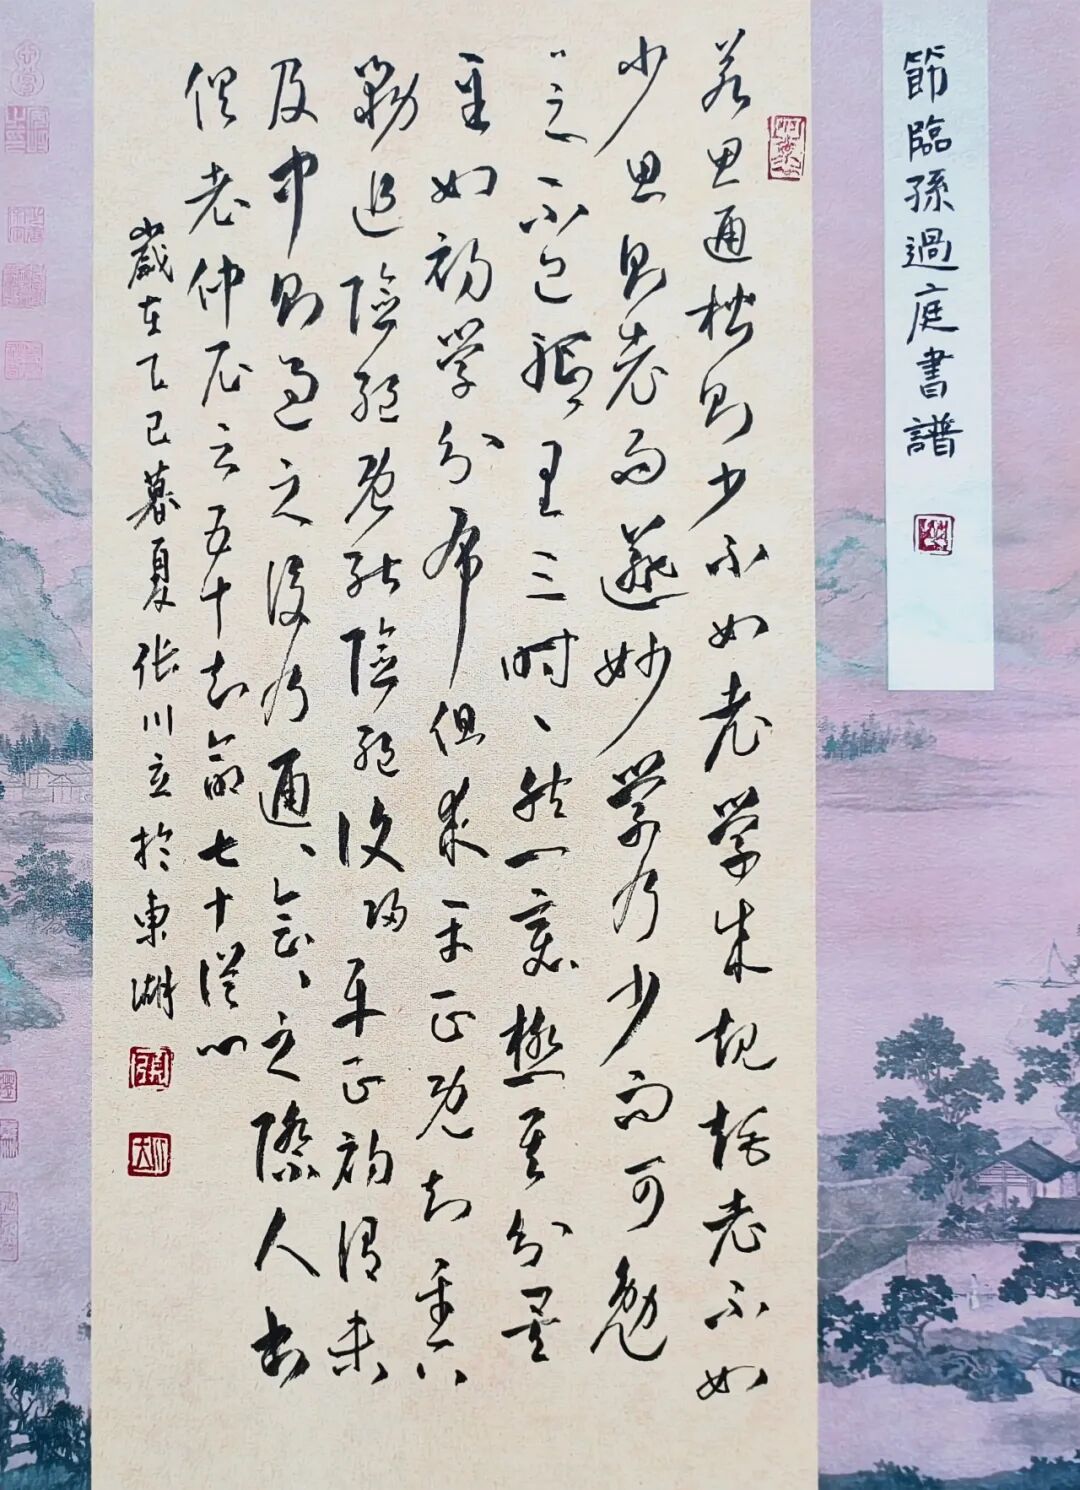 節臨孫過庭書譜
若思通楷則少不如老學成規矩老不如
少思則老而逾妙學乃少而可勉
〻之不已抑有三時〻然一變極其分矣
至如初學分布但求平正既知平正
務追險絕既能險絕復歸平正初謂未
及中則過之後乃通〻會〻之際人書
俱老仲尼云五十知命七十從心
歲在乙巳暮夏张川立於東湖